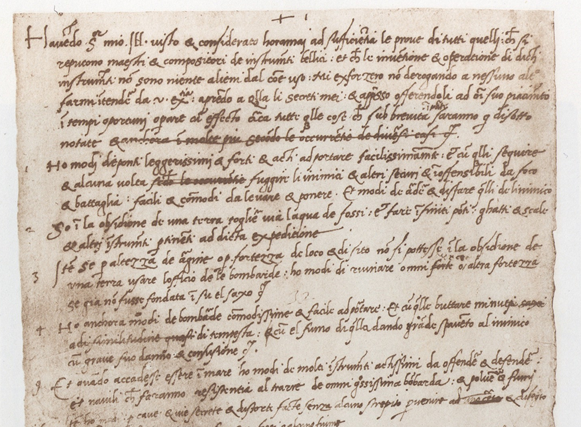 Havēdo S.or mio Ill. visto & considerato horamai ad sufficiētia le prove di tutti quelli chē si
reputono maestri & compositori de instrumēti bellici: et chē le invētione & operatione di dicti
instrumēti nō sono niente alieni dal cōe uso: mi exforzero nō derogando a nessuno altro
farmi intēder da v. exᵗⁱᵃ: aprēdo a q̄lla li secreti mei: & apresso offerendoli ad oñi suo piacimēto
ī tempi oportuni operare cū effecto circa tutte q̄lle cose chē sub brevità saranno q̄ disotto
notate
1 Ho modi de ponti leggerissimi & forti & acti ad portare facilissimamēte: Et cū q̄lli seguire
& alcuna volta fuggire li inimici & altri securi & inoffensibili da foco
& battaglia: facili & cōmodi da levare & ponere. Et modi de ardere & disfare q̄lli de linimico
2 So ī la obsidione de una terra toglier via laqua de fossi: e fare īfiniti pōti ghatti & scale
& altri īstrumēti ptinēti ad dicta expeditione
3 Itē se p altezza de argine o p fortezza de loco & di sito nō si pottesse ī la obsidione de
una terra usare lofficio de le bombarde: ho modi di ruinare omni o altra fortezza
se gia nō fusse fondata ī su el saxo
4 Ho anchora modi de bombarde cōmodissime & facile ad portare: Et cū q̄lle buttare minuti
adi similitudine di tempesta: & cū el fumo di q̄lla dando grāde spavēto al inimico
cū grave suo danno & confusione
9 Et quādo accadesse essere ī mare ho modi de molti īstrumēti actissimi da offendere & defendere
et navili chē faranno resistentia al trarre de omni grossissima bōbarda: & polvere & fumi